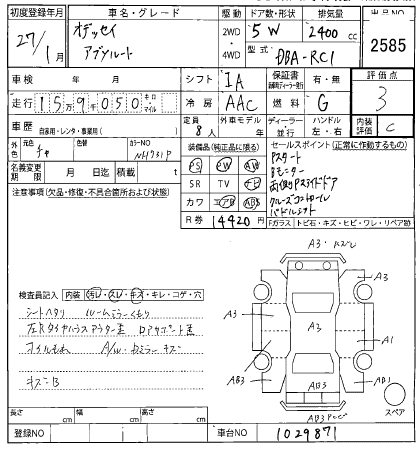 初度登録年月 車名・グレード 駆動 ドア数・形状 排気量 出品NO
27/1月 オデッセイ 2WD・4WD 5W 2400cc 2585
アブソルート 型式 DBA-RC1
車検 年 月 シフト IA 保証書 有・無 評価点
走行 15万9千050 キロ・マイル 冷房 AAC 燃料 G 3
車歴 自家用・レンタ・事業用( ) 定員 8人 外車モデル 年 ディーラー・並行 ハンドル 左・右 内装評価 C
外色 元色 チャ 色替 カラーNO NH731P 装備品(純正品に限る) セールスポイント(正常に作動するもの)
名義変更期限 月 日迄 積載 t PS PW AW Pスタート
注意事項(欠品・修復・不具合箇所および状態) SR TV ナビ Bモニター
カワ エアB ABS 両側Pスライドドア
R券 14420円 クルーズコントロール
パドルシフト
Fガラス トビ石・キズ・ヒビ・ワレ・リペア跡
検査員記入 内装 汚レ・スレ・キズ・キレ・コゲ・穴
シートヘタリ ルームミラーくもり
オイルもれ A/W・ドアミラーキズ
キズ:B
A3
A3
A3
A3
A3
A1
AB3
AB3
AB1
スペア
長さ cm 幅 cm 高さ cm
登録NO 車台NO 1029871